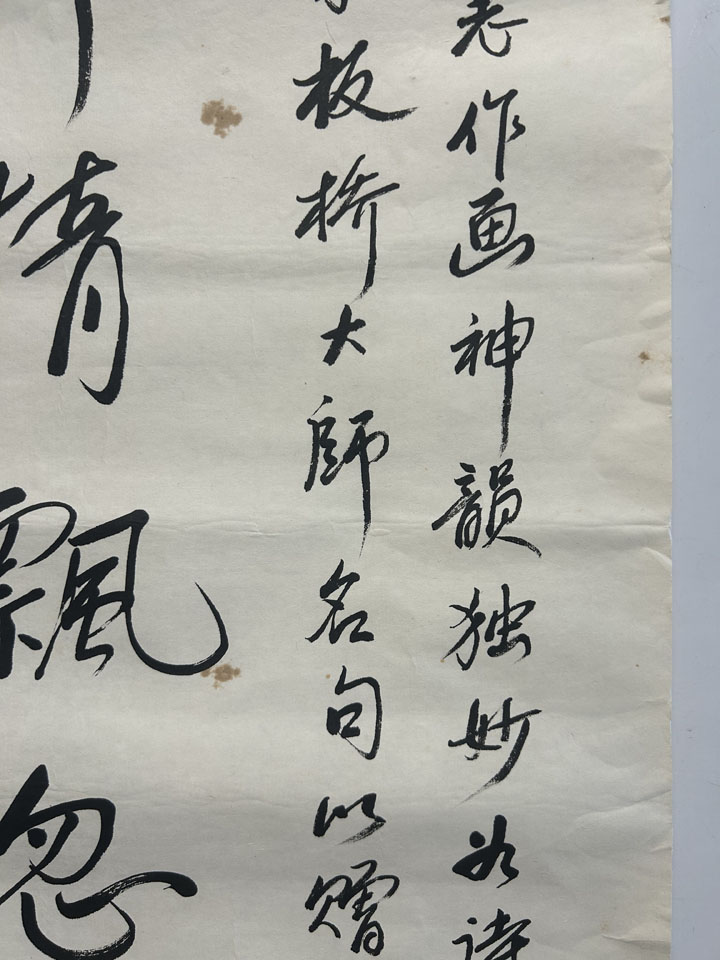 老作画神韻独妙如诗
板桥大師名句以赠
情飄忽